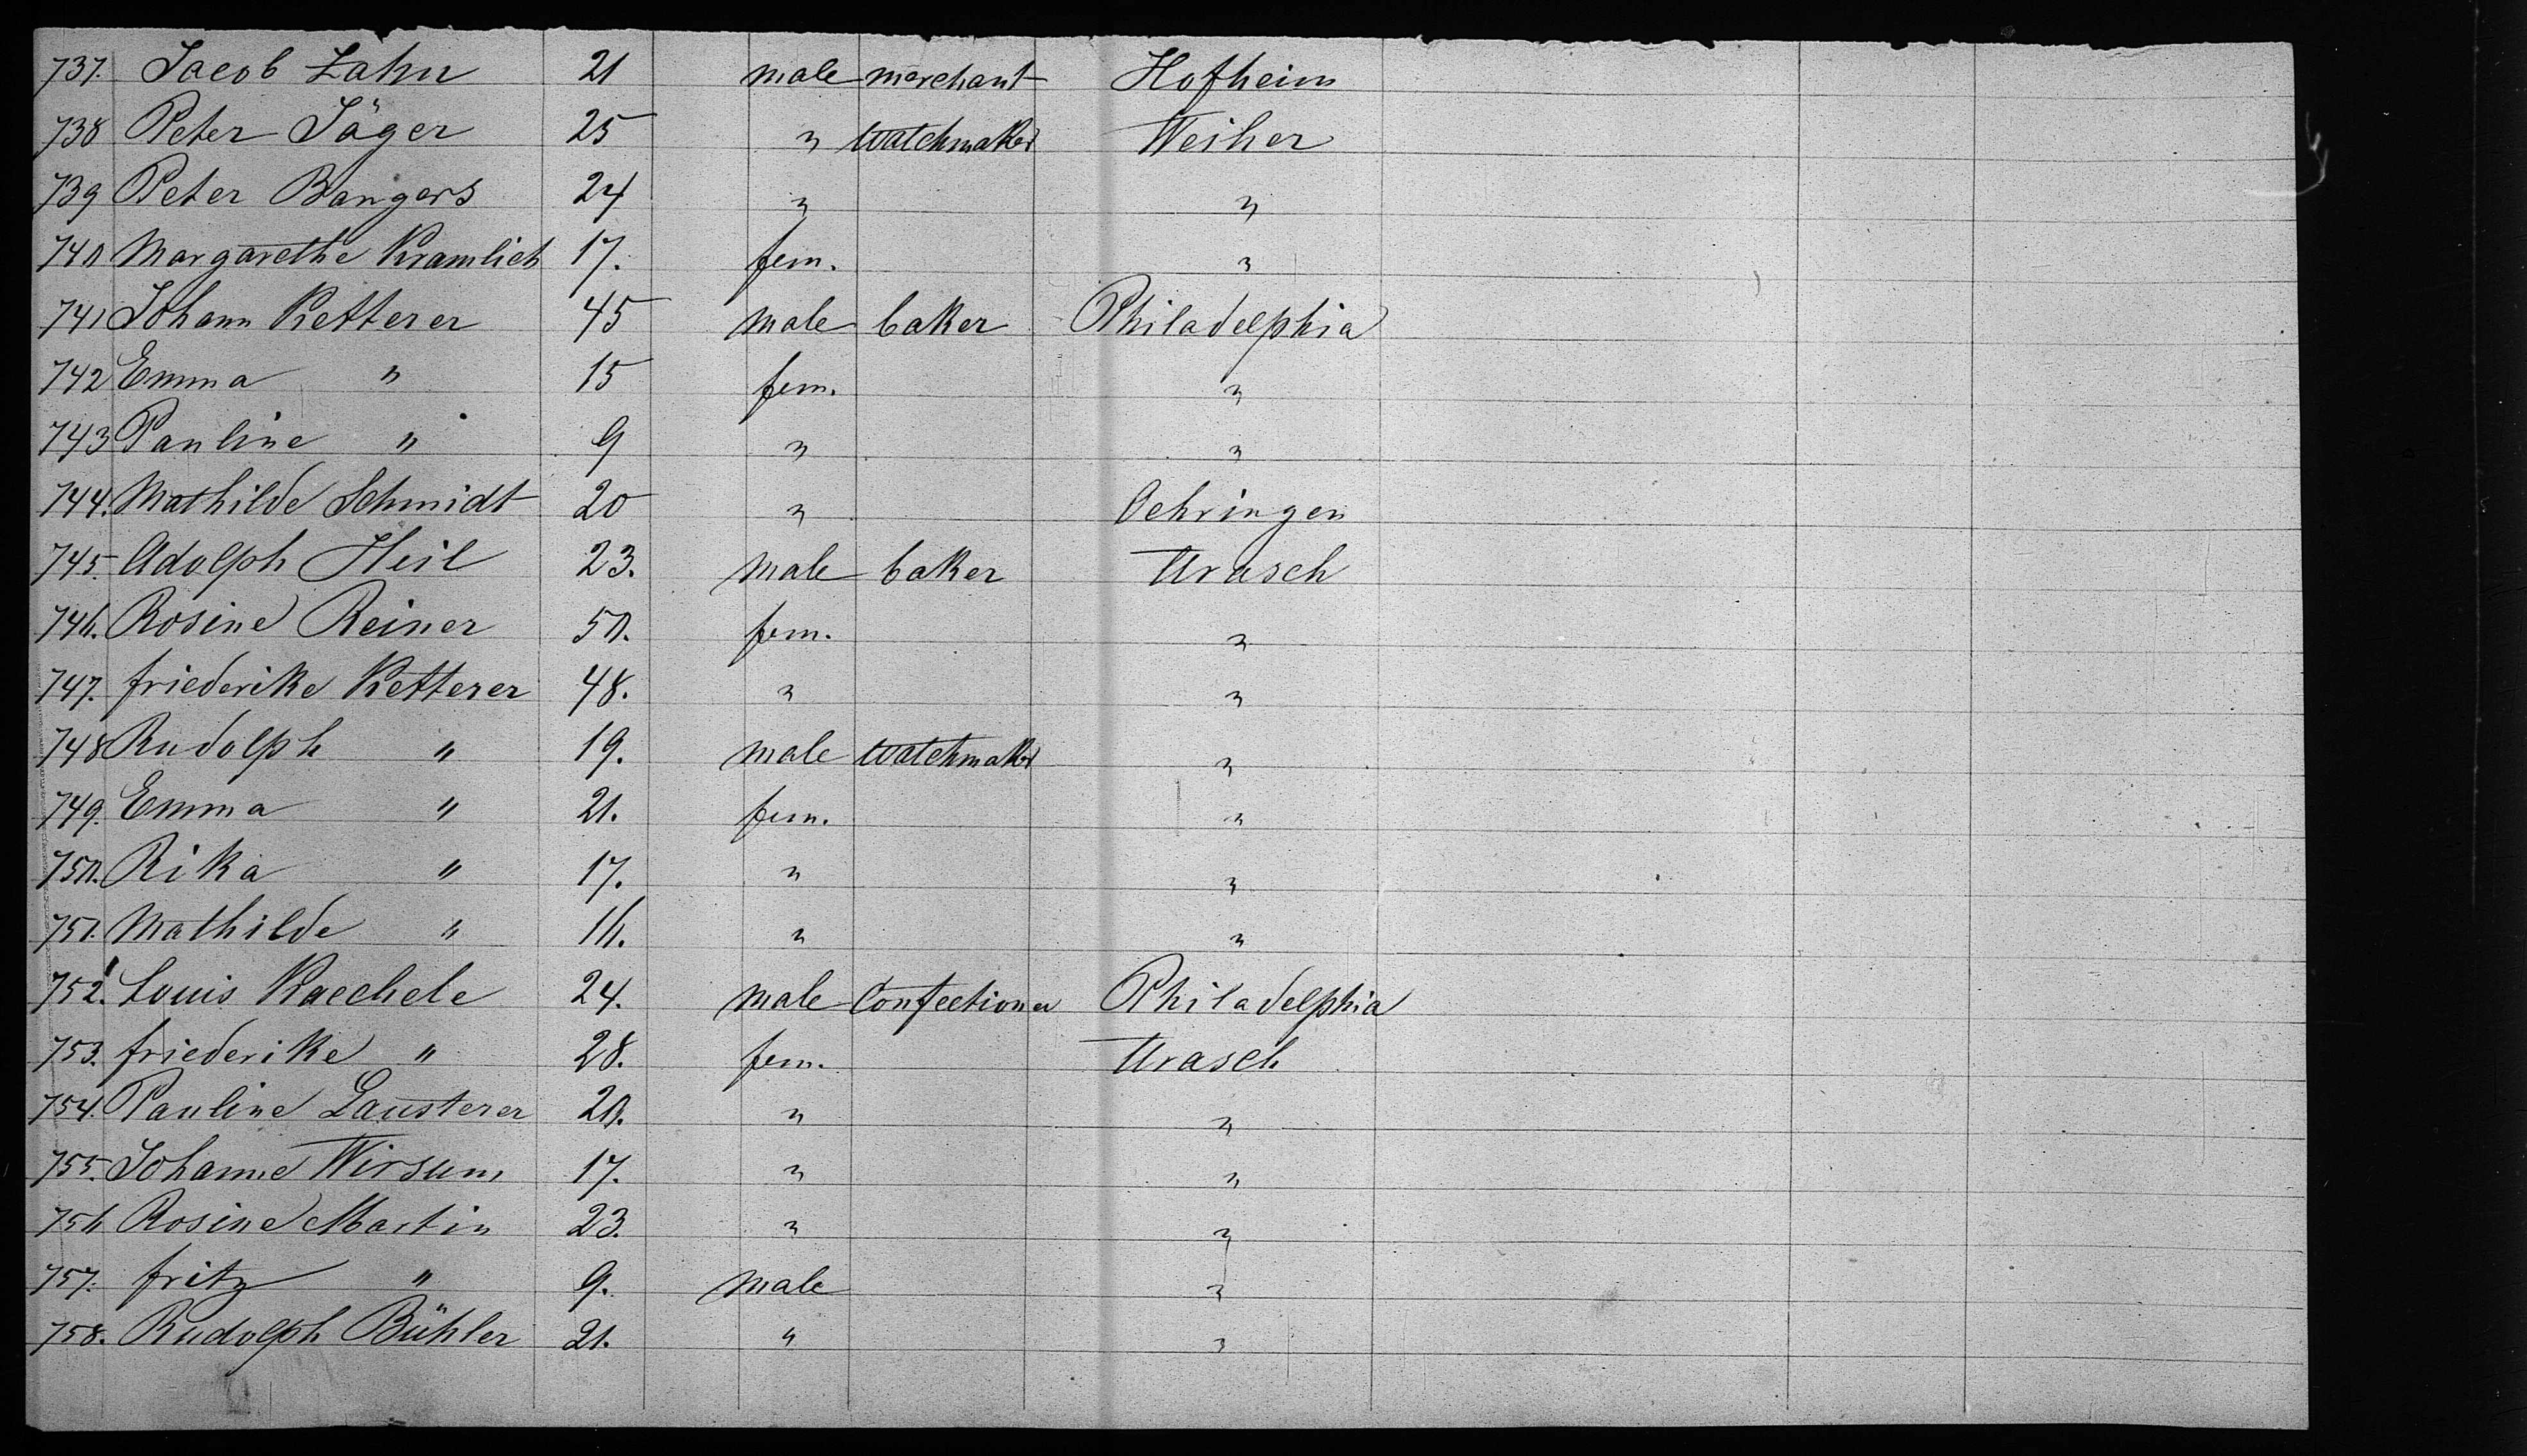 737. Jacob Zahn 21 male merchant Hofheim
738 Peter Jäger 25 " watchmaker Weiher
739 Peter Bangers 24 " "
740 Margarethe Kramlich 17. fem. "
741 Johann Ketterer 45 male baker Philadelphia
742 Emma " 15 fem. "
743 Pauline " 9 " "
744. Mathilde Schmidt 20 " Oehringen
745. Adolph Heil 23. male baker Urasch
746. Rosine Reiner 50. fem. "
747. Friederike Ketterer 48. " "
748 Rudolph " 19. male watchmaker "
749. Emma " 21. fem. "
750. Rika " 17. " "
751. Mathilde " 16. " "
752. Louis Kaechele 24. male Confectioner Philadelphia
753. Friederike " 28. fem. Urasch
754. Pauline Lausterer 20. " "
755. Johanne Wirsum 17. " "
756 Rosine Martin 23. " "
757. Fritz " 9. male "
758. Rudolph Bühler 21. " "